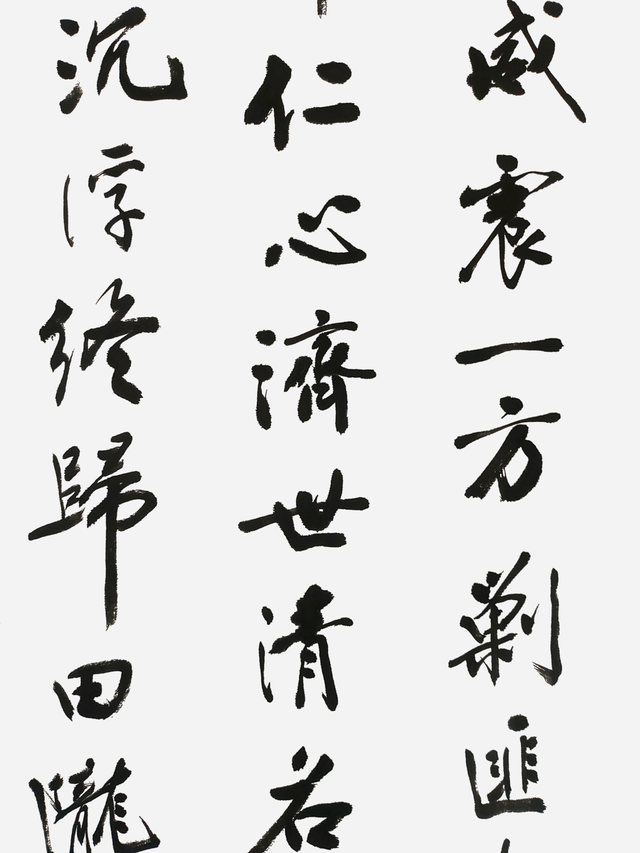 威震一方剿匪
仁心濟世清名
沉浮終歸田隴